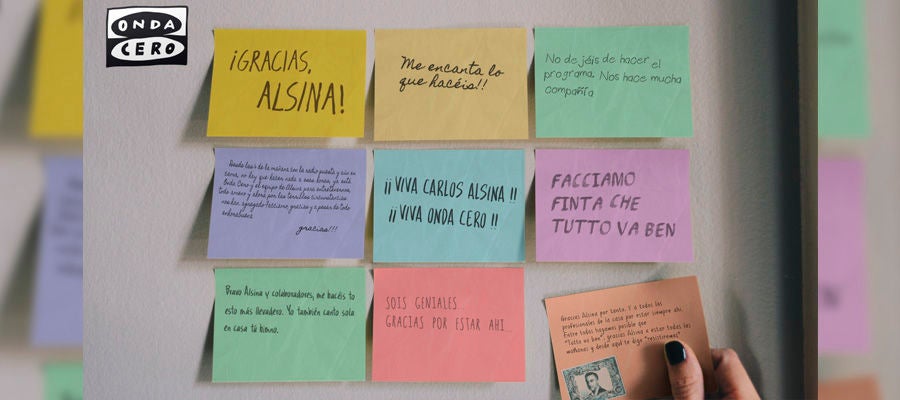 ONDA
CERO
¡GRACIAS,
ALSINA!
Me encanta lo
que hacéis!!
No de jéis de hacer el
programa. Nos hace mucha
compañía
Desde las 6 de la mañana con la radio puesta y aún en
cama, no hay que hacer nada a esas horas, ya está
Onda Cero y el equipo de Alsina para entretenernos,
todo ameno y ahora por las terribles circunstancias
nos han agregado Facciamo, gracias y a pesar de todo
enhorabuena
gracias!!!
¡¡ VIVA CARLOS ALSINA !!
¡¡ VIVA ONDA CERO !!
FACCIAMO
FINTA CHE
TUTTO VA BEN
Bravo Alsina y colaboradores, me hacéis to
esto más llevadero. Yo también canto sola
en casa tú himno.
SOIS GENIALES.
GRACIAS POR ESTAR AHI...
Gracias Alsina por tanto. Y a todos los
profesionales de la casa por estar siempre ahí.
Entre todos hagamos posible que
"Tutto va ben", gracias Alsina a estar todas las
mañanas y desde aquí te digo "resistiremos"